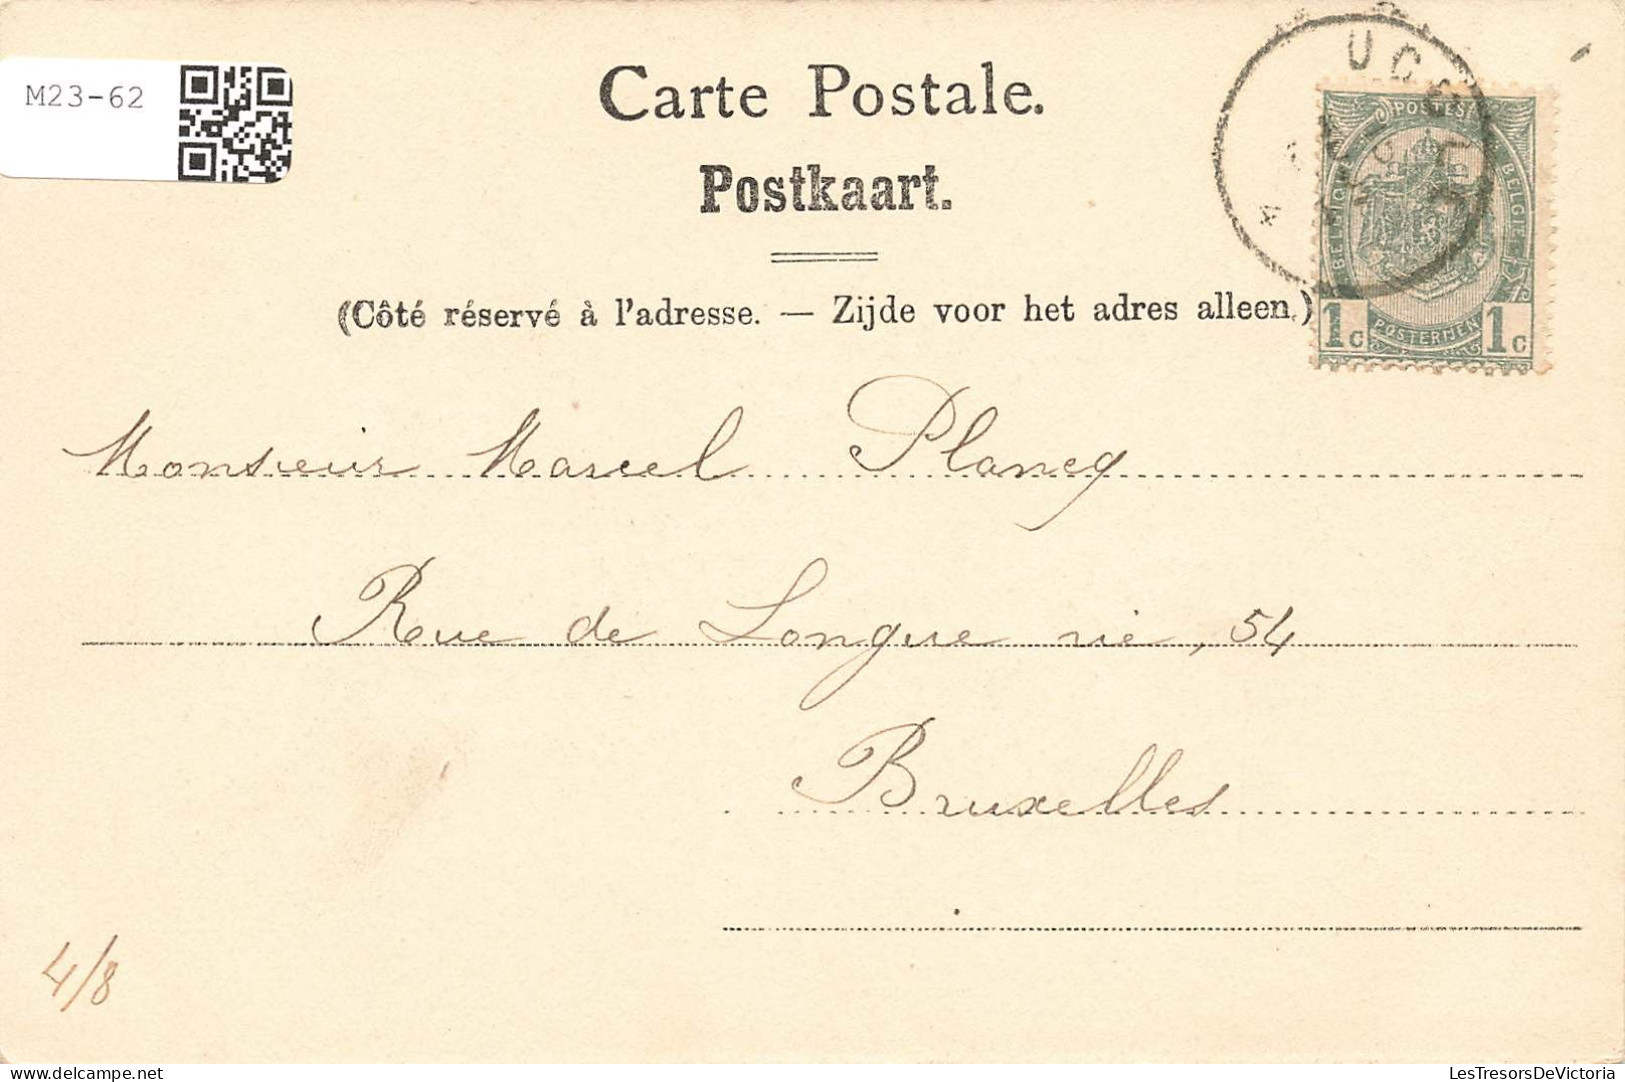 M23-62
Carte Postale.
Postkaart.
(Côté réservé à l'adresse. — Zijde voor het adres alleen.)
POSTES
BELGIQUE BELGIE
1c POSTERIJEN 1c
Monsieur Marcel Plancq
Rue de Longue vie, 54
Bruxelles
4/8
delcampe.net
LesTresorsDeVictoria